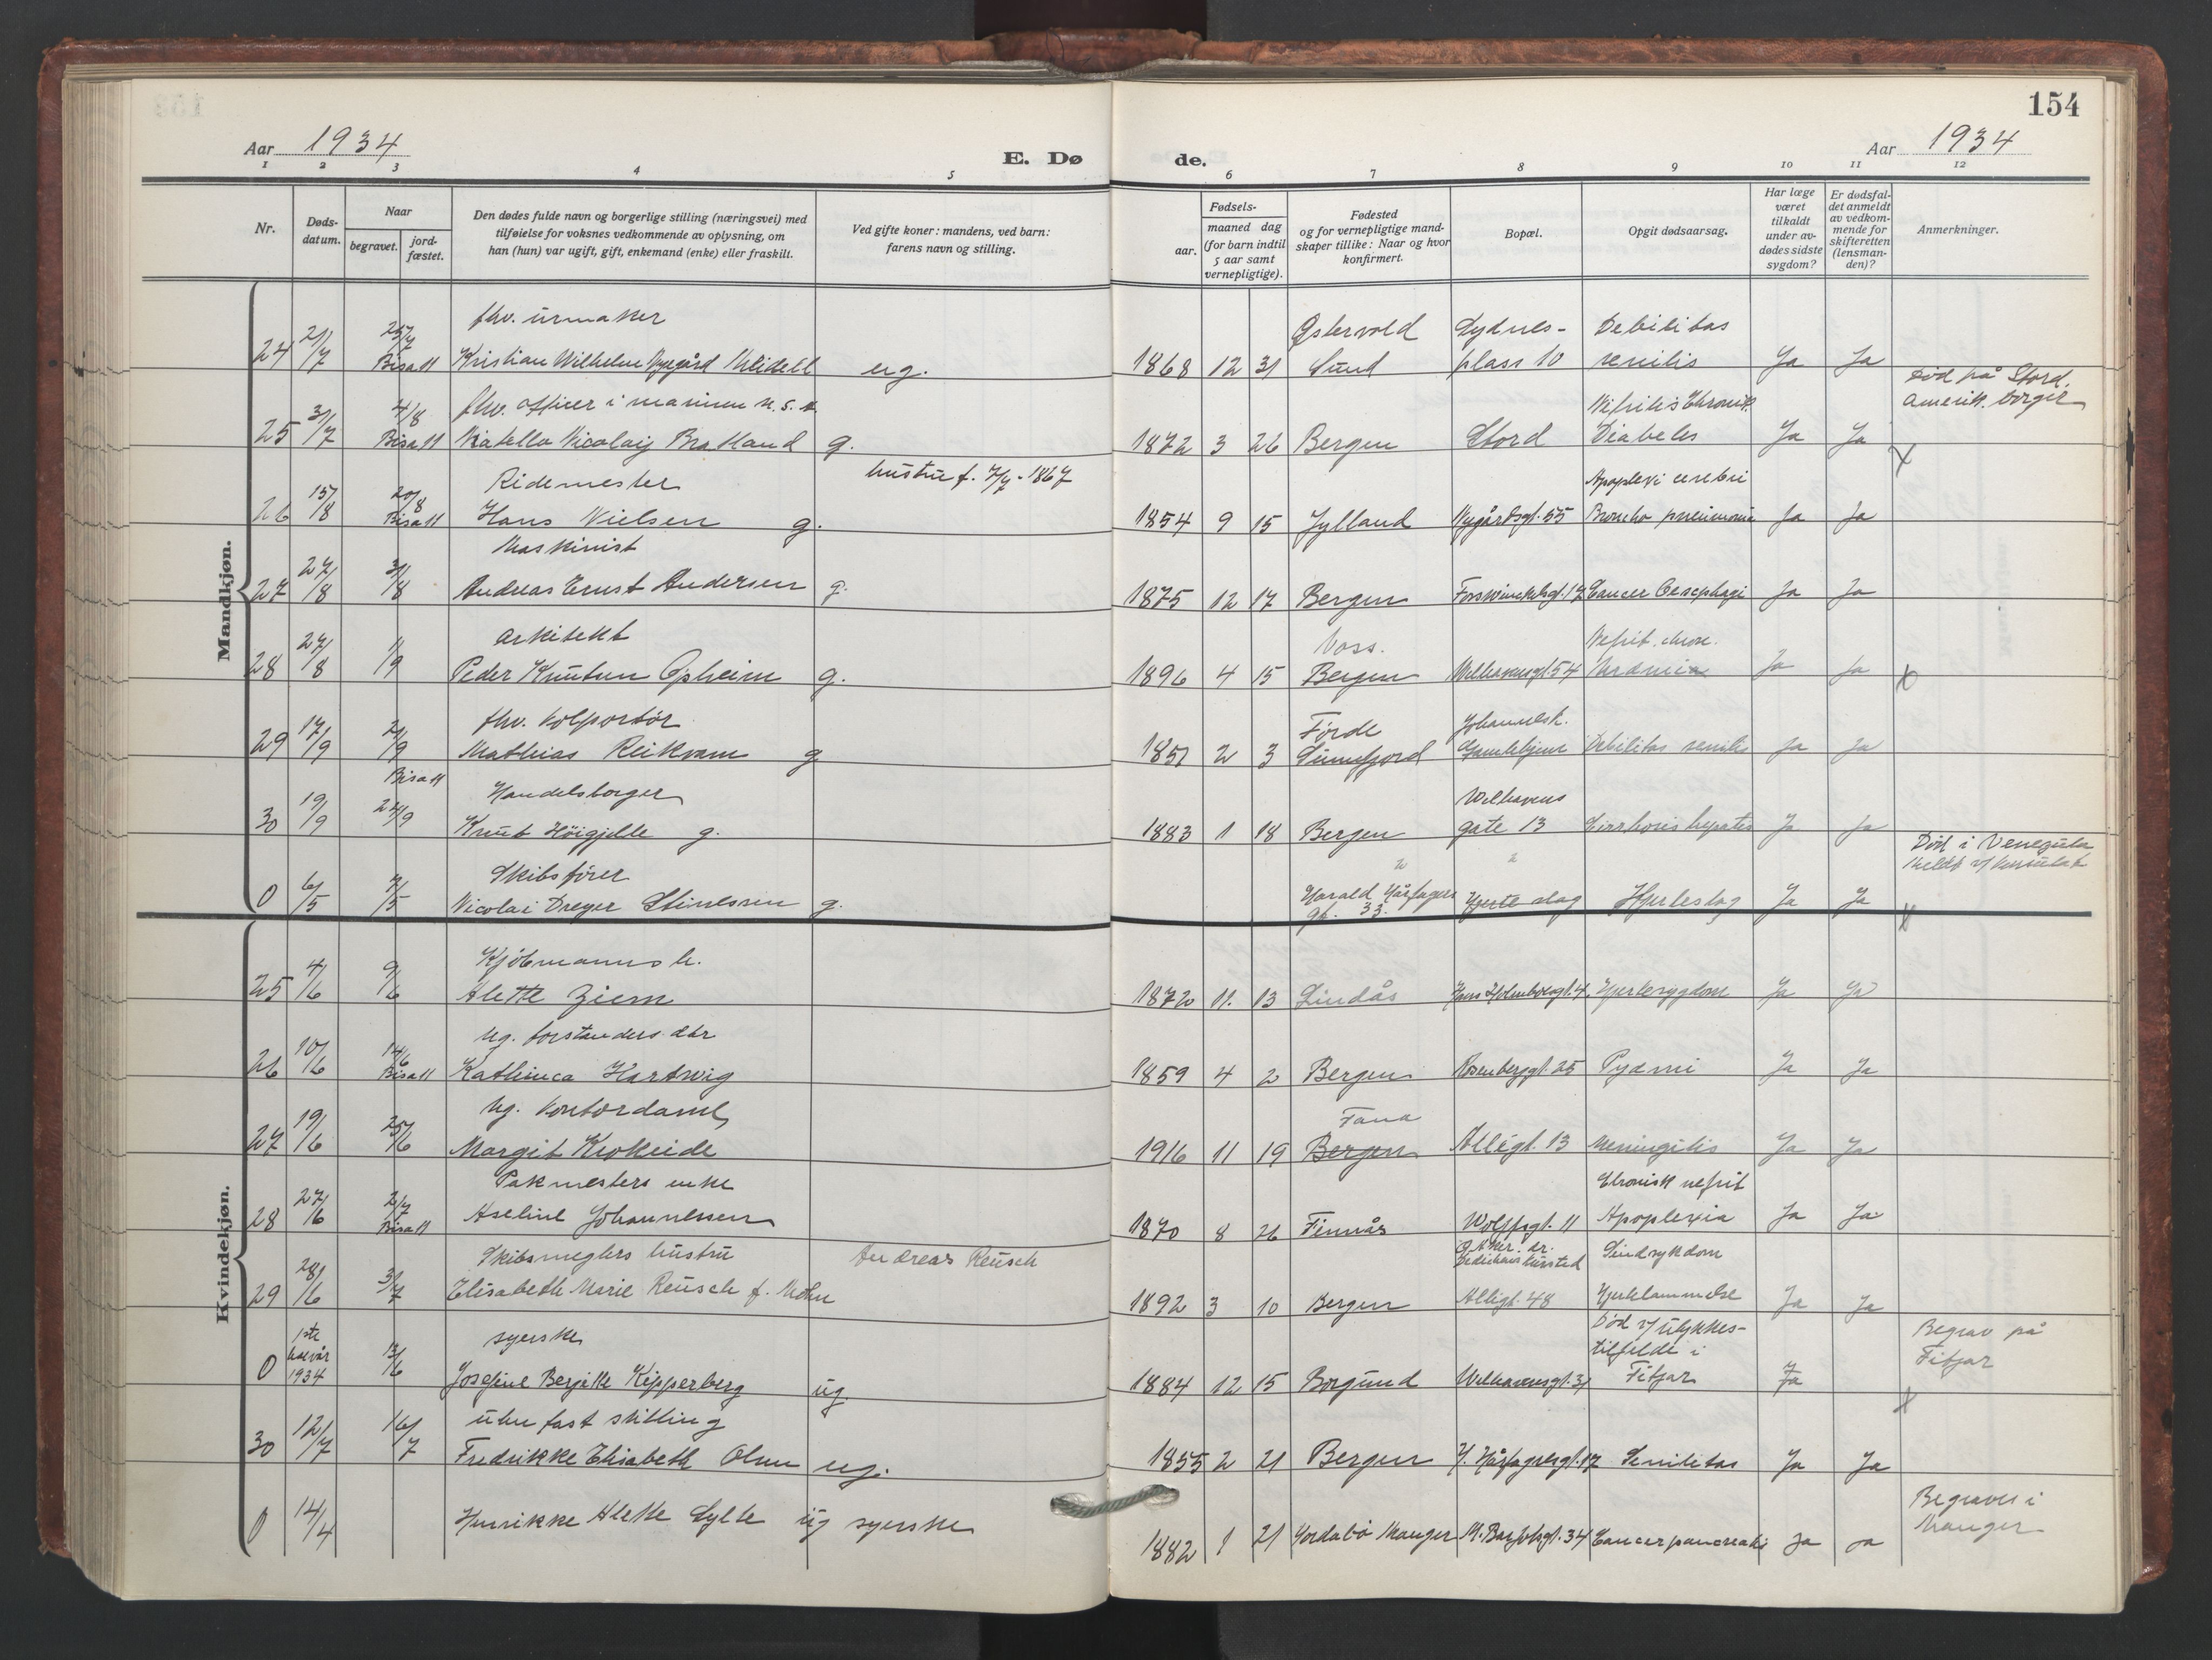 154
Aar 1934
E. Dø
de.
Aar 1934
1 2 3 4 5 6 7 8 9 10 11 12
Nr.
Døds-
datum.
Naar
begravet.
jord-
fæstet.
Den dødes fulde navn og borgerlige stilling (næringsvei) med
tilføielse for voksnes vedkommende av oplysning, om
han (hun) var ugift, gift, enkemand (enke) eller fraskilt.
Ved gifte koner: mandens, ved barn:
farens navn og stilling.
Fødsels-
aar.
maaned dag
(for barn indtil
5 aar samt
vernepligtige).
Fødested
og for vernepligtige mand-
skaper tillike: Naar og hvor
konfirmert.
Bopæl.
Opgit dødsaarsag.
Har læge
været
tilkaldt
under av-
dødes sidste
sygdom?
Er dødsfal-
det anmeldt
av vedkom-
mende for
skifteretten
(lensman-
den)?
Anmerkninger.
Mandkjøn.
fhv. urmaker
24 21/7 25/7 Kristian Wilhelm Nygård Meidell ug. 1868 12 31
Østervold
Sund
Sydnes-
plass 10
Debilitas
senilis
Ja Ja
fhv. officer i marinen
25 31/7 4/8 Nicolaij Bratland g. 1872 3 26 Bergen Stord
Nefritis Chronik.
Diabetes
Ja Ja
Død på Stord.
amerik. borger
Ridemester
26 15/8 20/8 Hans Nielsen g.
hustru f. 7/7-1867
1854 9 15 Jylland Nygårdsgt. 55
Apoplexi cerebri
Broncho pneumonia
Ja Ja
Maskinist
27 27/8 31/8 Andreas Ernst Andersen g. 1875 12 17 Bergen Cancer Oesophagi Ja Ja
arkitekt
28 27/8 1/9 Peder Knutsen Opheim g. 1896 4 15
Voss.
Bergen
Welhavensgt. 54
Nefrit. chron.
Uræmia
Ja Ja
fhv. kolportör
29 17/9 21/9 Mathias Reikvam g 1851 2 3
Førde
Sunnfjord
Johannesk.
Gamlehjem
Debilitas senilis Ja Ja
Handelsborger
30 19/9 24/9 Knut Höigjelle g. 1883 1 18 Bergen
Welhavens
gate 13
Cirrhosis hepatis Ja Ja
Skibsfører
0 6/5 7/5 Nicolai Dreyer g.
Harald Hårfagers
gt. 33.
Hjerteslag Hjerteslag Ja Ja
Død i Venezuela
meldt v/ konsulat
Kvindekjøn.
Kjöbmanns h.
25 4/6 9/6 Alette Ziem 1872 11. 13 Lindås Hjertesygdom Ja Ja
Ug. forstanders dtr
26 10/6 14/6 Kathinca Hartwig 1859 4 2 Bergen Rosenberggt. 25 Pyämi Ja Ja
Ug. kontordame
27 19/6 25/6 Margit Krokeide 1916 11 19
Fana
Bergen
Allégt. 13 Meningitis Ja Ja
Pakmesters enke
28 27/6 2/7 Aseline Johannessen 1870 8 26 Finnås Wolffsgt. 11
Chronisk nefrit
Apoplexia
Ja Ja
Skibsmeglers hustru
29 28/6 3/7 Elisabeth Marie Reusch f. Mohn Andreas Reusch 1892 3 10 Bergen
Allégt. 48
Sindsykdom
Hjertelammelse
Ja Ja
syerske
0
1ste
halvår
1934
13/6 Josefine Bergitte Kipperberg ug 1884 12 15 Borgund Welhavensgt. 31
Død v/ ulykkes-
tilfelde i
Fitjar
Ja
Begrav på
Fitjar
uten fast stilling
30 12/7 16/7 Fredrikke Elisabeth Olsen ug. 1855 2 21 Bergen H. Hårfagresgt. 17 Senilitas Ja Ja
0 14/4 Henrikke Alette Sylte ug syerske 1882 1 21 Manger 34 Cancer pancreatis Ja Ja
Begraves i
Manger